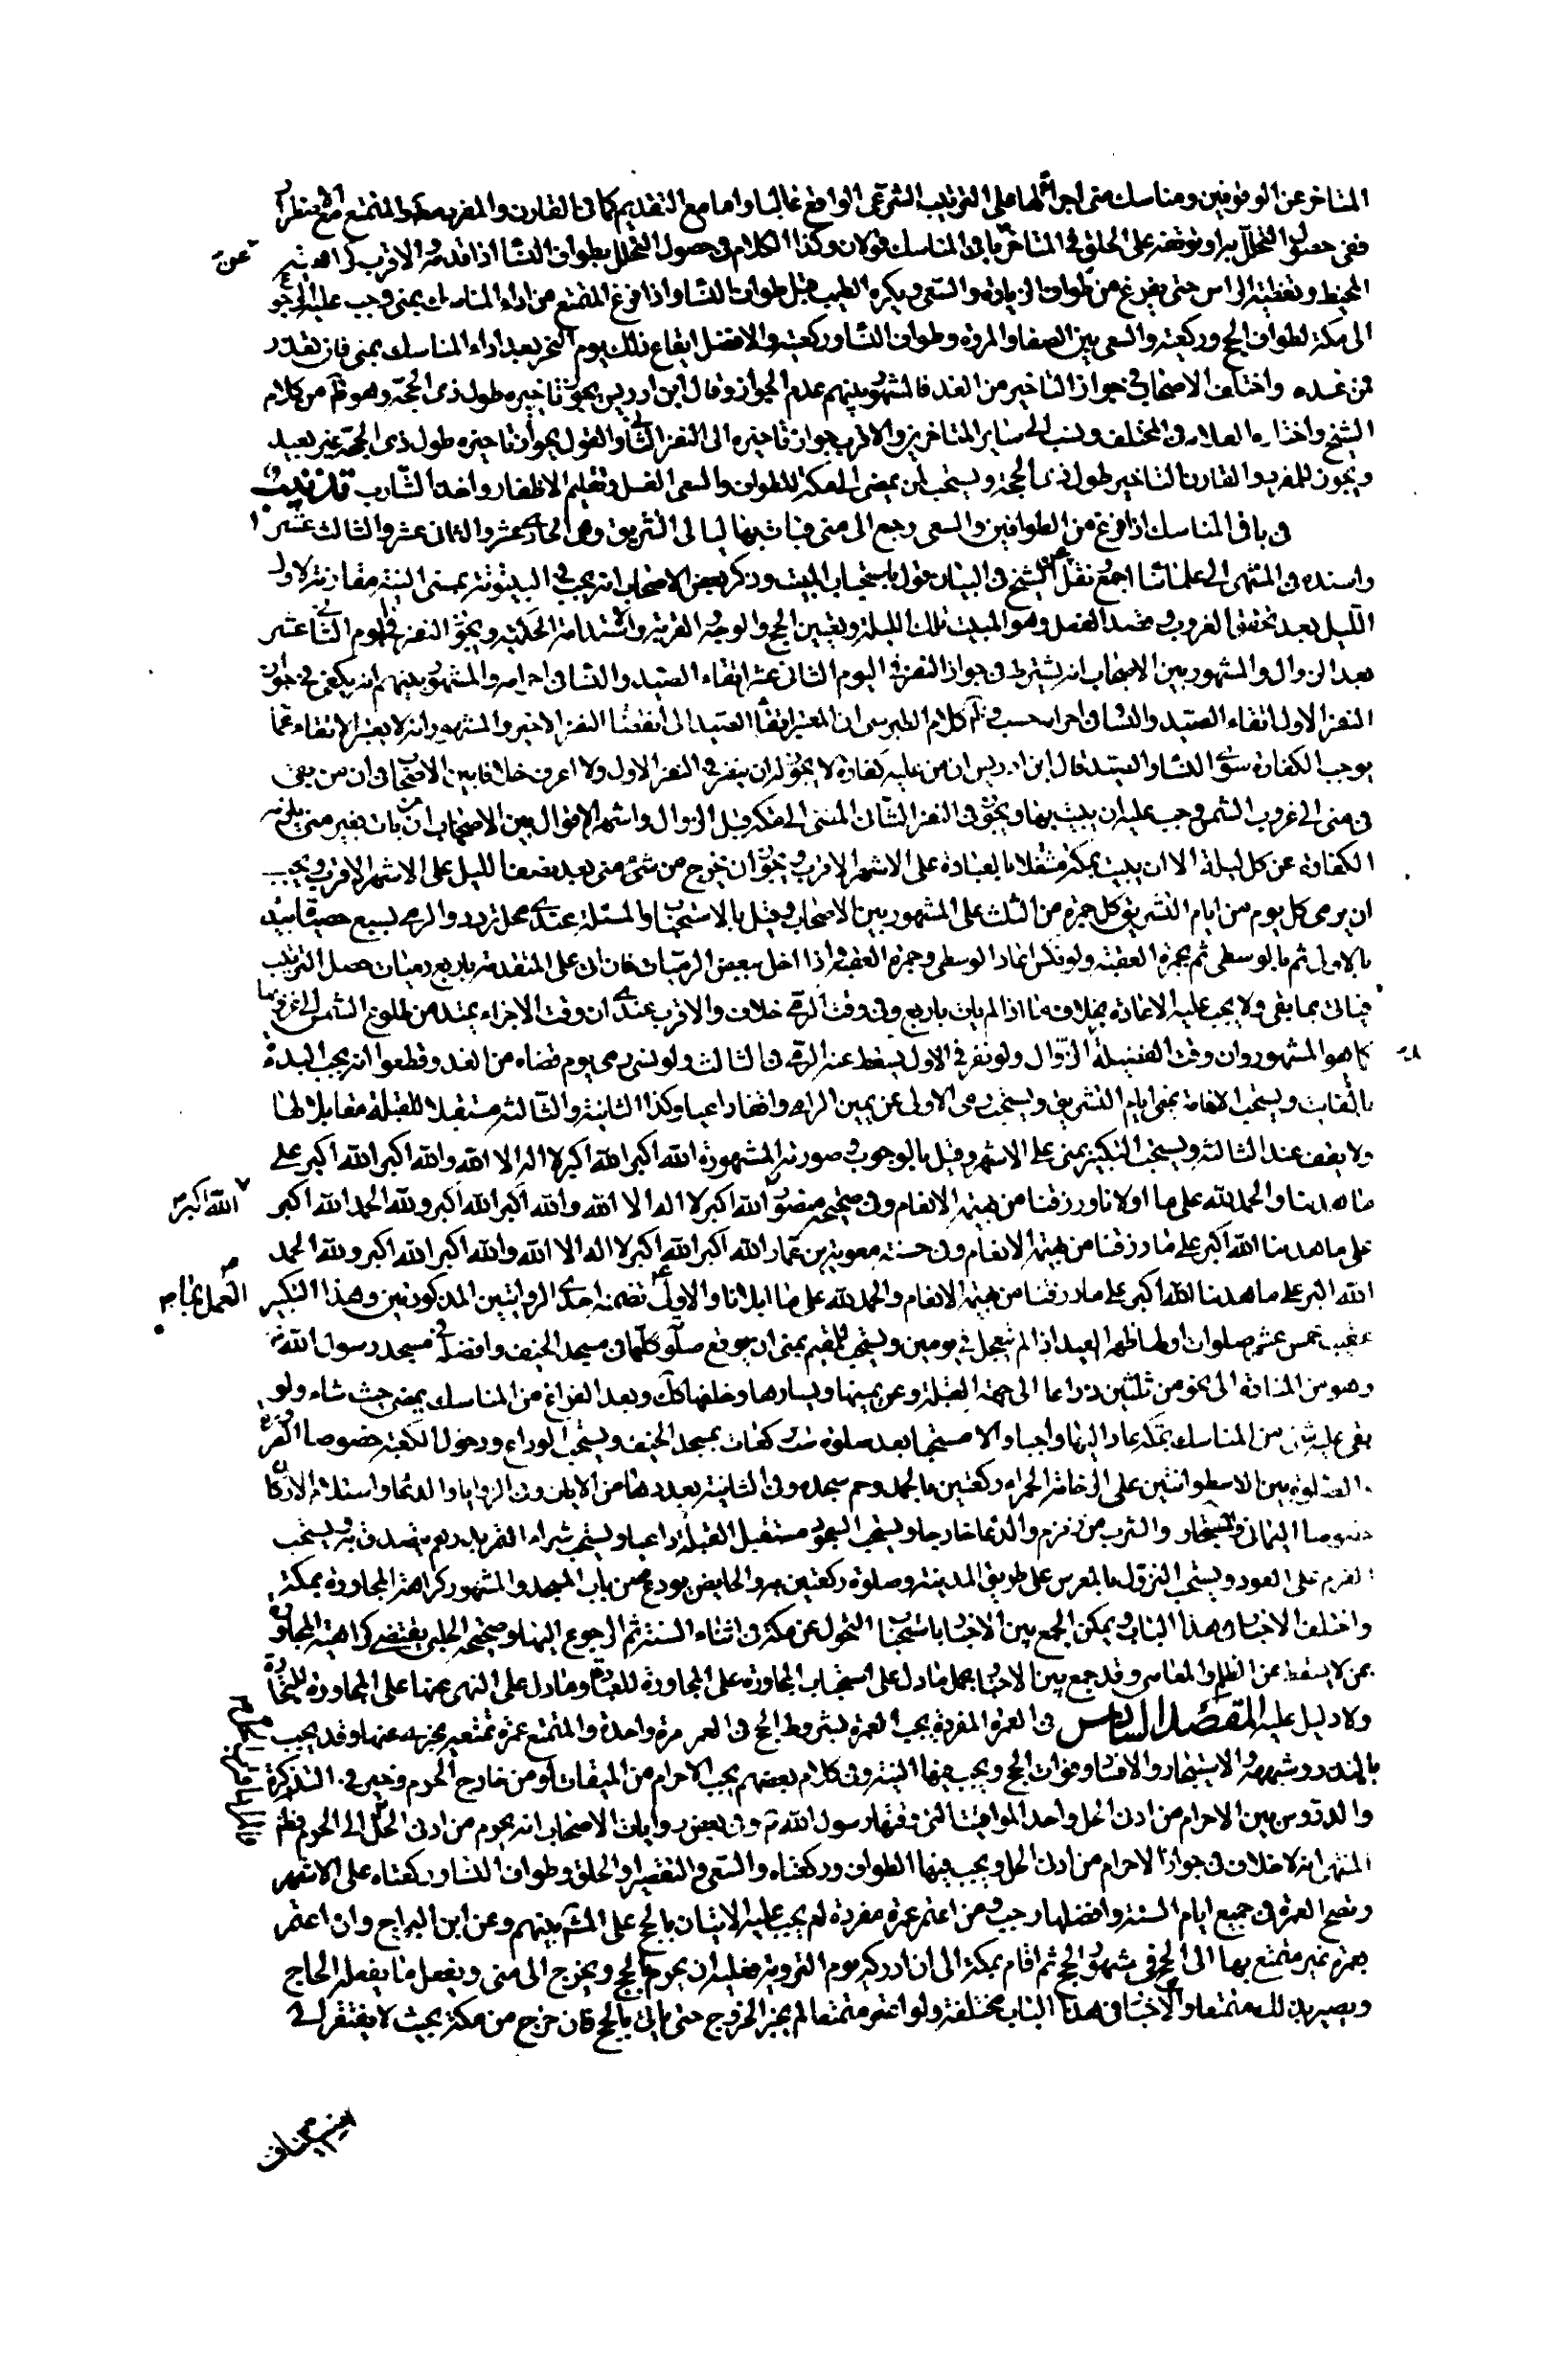 المتاخر عن الوقوفين ومناسك منى اجراؤها على الترتيب الشرعى الواقع غالبا واما مع التقديم كما فى القارن والمفرد مطلقا والمتمتع مع
ففى حصول التحلل به او توقفه على الحلق فى المتاخر باقى المناسك قولان وكذا الكلام فى حصول التحلل بطواف النساء اذا قدمه والاقرب كراهة
المخيط وتغطية الراس حتى يفرغ من طواف الزيارة والسعى ويكره الطيب قبل طواف النساء واذا فرغ المتمتع من اداء المناسك بمنى وجب عليه الرجوع
الى مكة لطواف الحج وركعتيه والسعى بين الصفا والمروة وطواف النساء وركعتيه والافضل ايقاع ذلك يوم النحر بعد اداء المناسك بمنى فان تعذر
فمن غده واختلف الاصحاب فى جواز التاخير من الغد فالمشهور بينهم عدم الجواز وقال ابن ادريس يجوز تاخيره طول ذى الحجة وهو ظ من كلام
الشيخ واختاره العلامة فى المختلف ونسب الى سائر المتاخرين والاقرب جواز تاخيره الى النفر الثانى والقول بجواز تاخيره طول ذى الحجة غير بعيد
ويجوز للمفرد والقارن التاخير طول ذى الحجة ويستحب لمن يمضى الى مكة للطواف والسعى الغسل وتقليم الاظفار واخذ الشارب تذنيب
فى باقى المناسك اذا فرغ من الطوافين والسعى رجع الى منى فبات بها ليالى التشريق وهى الحادى عشر والثانى عشر والثالث عشر
واسنده فى المنتهى الى علمائنا اجمع نقل عن الشيخ فى التبيان قول باستحباب المبيت وذكر بعض الاصحاب انه يجب فى البيتوتة بمنى النية مقارنة لاول
الليل بعد تحقق الغروب قصد الفعل وهو المبيت تلك الليلة وتعيين الحج والوجه القربة والاستدامة الحكمية ويجوز النفر فى اليوم الثانى عشر
بعد الزوال والمشهور بين الاصحاب انه يشترط فى جواز النفر فى اليوم الثانى عشر اتقاء الصيد والنساء فى احرامه والمشهور بينهم انه يكفى فى جواز
النفر الاول اتقاء الصيد والنساء فى احرامه حسب و ظ كلام الطبرسى ان المعتبر اتقاء الصيد الى انقضاء النفر الاخير والمشهور انه لا يعتبر الاتقاء عما
يوجب الكفارة سوى النساء والصيد قال ابن ادريس ان من عليه كفارة لا يجوز له ان ينفر فى النفر الاول ولا اعرف خلافا بين الاصحاب فى ان من بقى
فى منى الى غروب الشمس وجب عليه ان يبيت بها ويجوز فى النفر الثانى المضى الى مكة قبل الزوال واشهر الاقوال بين الاصحاب ان من بات بغير منى يلزمه
الكفارة عن كل ليلة الا ان يبيت بمكة مشتغلا بالعبادة على الاشهر الاقرب ويجوز ان خرج من منى بعد نصف الليل على الاشهر الاقرب ويجب
ان يرمى كل يوم من ايام التشريق كل جمرة من الثلث على المشهور بين الاصحاب وقيل بالاستحباب والمسئلة عندى محل تردد والرمى بسبع حصيات يبتدء
بالاولى ثم بالوسطى ثم بجمرة العقبة ولو نكس اعاد الوسطى وجمرة العقبة واذا اخل ببعض الرميات فان اتى على المتقدمة باربع رميات حصل الترتيب
فياتى بما بقى ولا يجب عليه الاعادة بخلاف ما اذا لم يات باربع وفى وقت الرمى خلاف والاقرب عندى ان وقت الاجزاء يمتد من طلوع الشمس الى غروبها
كما هو المشهور وان وقت الفضيلة الزوال ولو نفر فى الاول سقط عنه الرمى فى الثالث ولو نسى رمى يوم قضاه من الغد وقطعوا انه يجب البدءة
بالفائت ويستحب الاقامة بمنى ايام التشريق ويستحب رمى الاولى عن يمين الرامى واقفا داعيا وكذا الثانية والثالثة مستقبلا للقبلة مقابلا لها
ولا يقف عند الثالثة ويستحب التكبير بمنى على الاشهر وقيل بالوجوب وصورته المشهورة الله اكبر الله اكبر لا اله الا الله والله اكبر الله اكبر على
ما هدينا والحمد لله على ما اولانا ورزقنا من بهيمة الانعام وفى صحيحة منصور الله اكبر لا اله الا الله والله اكبر الله اكبر ولله الحمد الله اكبر
على ما هدينا الله اكبر على ما رزقنا من بهيمة الانعام وفى حسنة معوية بن عمار الله اكبر الله اكبر لا اله الا الله والله اكبر الله اكبر ولله الحمد
الله اكبر على ما هدينا الله اكبر على ما رزقنا من بهيمة الانعام والحمد لله على ما ابلانا والاولى تضمنه احدى الروايتين المذكورتين وهذا التكبير
عقيب خمس عشر صلوات اولها ظهر العيد اذا لم يتعجل فى يومين ويستحب للمقيم بمنى ان يوقع صلوته كلها فى مسجد الخيف وافضله مسجد رسول الله
وهو من المنارة الى نحو من ثلثين ذراعا الى جهة القبلة وعن يمينها ويسارها وخلفها كك وبعد الفراغ من المناسك يمضى حيث شاء ولو
بقى عليه شئ من المناسك بمكة عاد اليها واجبا والا مستحبا بعد صلوة ست ركعات بمسجد الخيف ويستحب الوداع ودخول الكعبة خصوصا الصرورة
والصلوة بين الاسطوانتين على الرخامة الحمراء ركعتين بالحمد وحم سجدة وفى الثانية بعددها من الايات وفى الزوايا والدعاء واستلام الاركان
خصوصا اليمانى والمستجار والشرب من زمزم والدعاء خارجا ويستحب السجود مستقبل القبلة داعيا ويستحب شراء التمر بدرهم يتصدق به ويستحب
العزم على العود ويستحب النزول بالمعرس على طريق المدينة وصلوة ركعتين به والحايض يودع من باب المسجد والمشهور كراهة المجاورة بمكة
واختلف الاخبار فى هذا الباب ويمكن الجمع بين الاخبار باستحباب التحول عن مكة فى اثناء السنة ثم الرجوع اليها وصحيحة الحلبى يقتضى كراهة المجاورة
بمن لا يتحفظ عن الظلم والمعاصى وقد جمع بين الاخبار بحمل ما دل على استحباب المجاورة على المجاورة للعبادة وما دل على النهى عنها على المجاورة للتجارة
ولا دليل عليه المقصد السادس فى العمرة المفردة يجب العمرة بشروط الحج فى العمر مرة واحدة والمتمتع عمرة تمتعه يجزيه عنها وقد يجب
بالنذر وشبهه والاستيجار والافساد وفوات الحج ويجب فيها النية وفى كلام بعضهم يجب الاحرام من الميقات او من خارج الحرم وخير فى التذكرة
والدروس بين الاحرام من ادنى الحل واحد المواقيت التى وقتها رسول الله ص وفى بعض روايات الاصحاب انه يحرم من ادنى الحل الى الحرم وظ
المنتهى انه لا خلاف فى جواز الاحرام من ادنى الحل ويجب فيها الطواف وركعتاه والسعى والتقصير او الحلق وطواف النساء وركعتاه على الاشهر
وتصح العمرة فى جميع ايام السنة وافضلها رجب ومن اعتمر عمرة مفردة لم يجب عليه الاتيان بالحج على المش بينهم وعن ابن البراج وان اعتمر
بعمرة غير متمتع بها الى الحج فى شهور الحج ثم اقام بمكة الى ان ادركه يوم التروية فعليه ان يحرم بالحج ويخرج الى منى ويفعل ما يفعله الحاج
ويصير بذلك متمتعا والاخبار فى هذا الباب مختلفة ولو اعتمر متمتعا لم يجز الخروج حتى ياتى بالحج فان خرج من مكة بحيث لا يفتقر الى